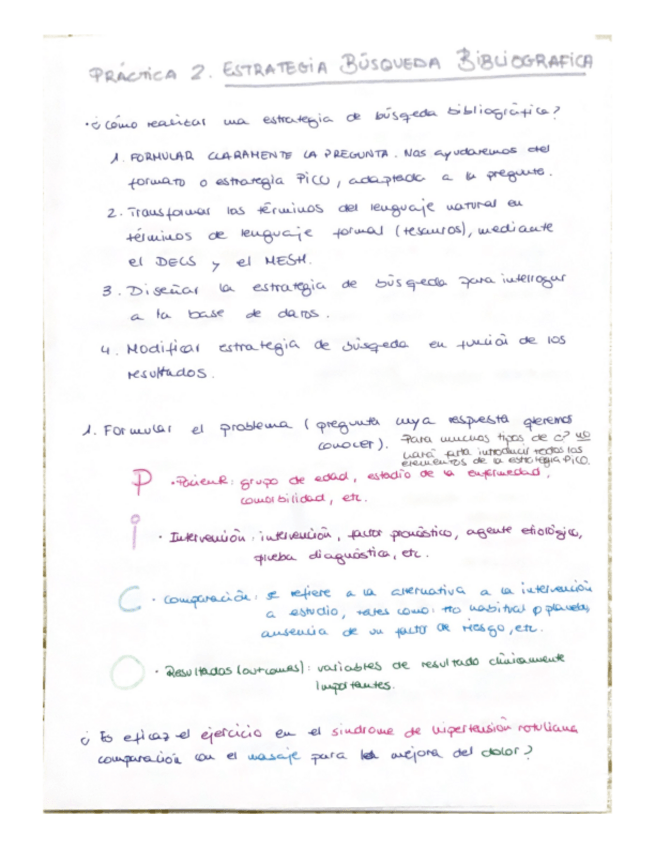 PRÁCTICA 2. ESTRATEGIA BÚSQUEDA BIBLIOGRAFICA
· ¿Cómo realizar una estrategia de búsqueda bibliográfica?
1. FORMULAR CLARAMENTE LA PREGUNTA. Nos ayudaremos del
formato o estrategia PICO, adaptada a la pregunta.
2. Transformar los términos del lenguaje natural en
términos de lenguaje formal (tesauros), mediante
el DECS y el MESH.
3. Diseñar la estrategia de búsqueda para interrogar
a la base de datos.
4. Modificar estrategia de búsqueda en función de los
resultados.
1. Formular el problema (pregunta cuya respuesta queremos
conocer). Para muchos tipos de c? no
hará falta introducir todos los
elementos de la estrategia PICO.
P · Paciente: grupo de edad, estadio de la enfermedad,
comorbilidad, etc.
i · Intervención: intervención, factor pronóstico, agente etiológico,
prueba diagnóstica, etc.
C · Comparación: se refiere a la alternativa a la intervención
a estudio, tales como: tto habitual o placebo,
ausencia de un factor de riesgo, etc.
O · Resultados (outcomes): variables de resultado clínicamente
importantes.
¿Es eficaz el ejercicio en el síndrome de hipertensión rotuliana
comparación con el masaje para la mejora del dolor?